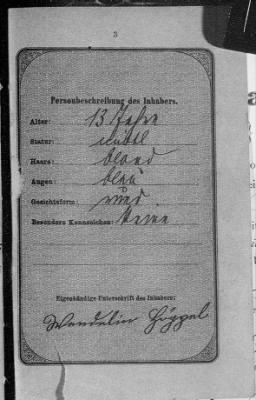 3
Personbeschreibung des Inhabers.
Alter: 13 Jahre
Statur: mittl
Haare: blond
Augen: blau
Gesichtsform: rund
Besondere Kennzeichen: keine
Eigenhändige Unterschrift des Inhabers:
Wendelin Höppel